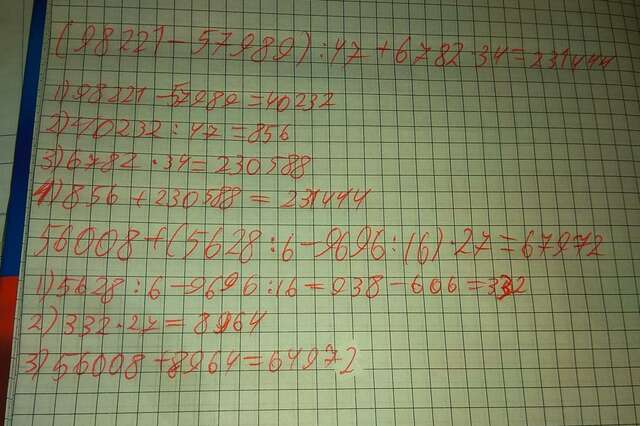 (98221-57989):47+6782·34=231444
1)98221-57989=40232
2)40232:47=856
3)6782·34=230588
4)856+230588=231444
56008+(5628:6-9696:16)·27=67972
1)5628:6-9696:16=938-606=332
2)332·27=8964
3)56008+8964=64972